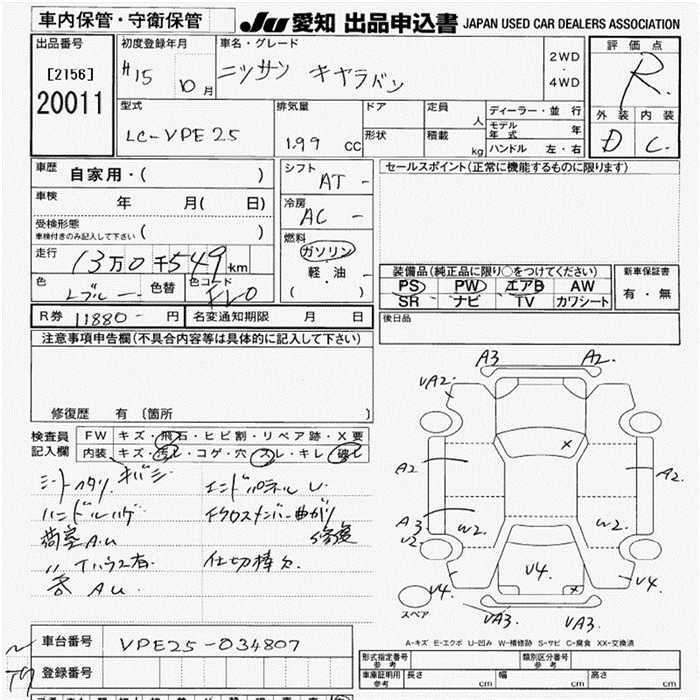 車内保管・守衛保管 JU 愛知 出品申込書 JAPAN USED CAR DEALERS ASSOCIATION
出品番号 初度登録年月 車名・グレード 2WD・4WD 評価点
[2156] H15 10月 ニッサン キャラバン R.
20011 外装 内装
型式 排気量 ドア 定員 人 ディーラー・並行 D C.
LC-VPE25 1.99 cc 形状 積載 kg モデル年式 年
ハンドル 左・右
車歴 自家用・( ) シフト AT - セールスポイント(正常に機能するものに限ります)
車検 年 月( 日) 冷房 AC -
受検形態
車検付きのみ記入して下さい ( ) 燃料 ガソリン
走行 13万0千549km 軽・油 -
( )
色 Lブルー 色替 色コード
装備品(純正品に限り○をつけてください) 新車保証書
PS PW エアB AW 有・無
SR ナビ TV カワシート
R券 11880- 円 名変通知期限 月 日 後日品
注意事項申告欄(不具合内容等は具体的に記入して下さい)
修復歴 有 〔箇所 〕
検査員記入欄 FW キズ・飛石・ヒビ割・リペア跡・X要
内装 キズ・汚レ・コゲ・穴・スレ・キレ・破レ
シートヘタリ. キバミ. エンドパネル U.
ハンドルハゲ
荷室A.U 修復
仕切棒欠.
A.U
A3 A2.
UA2.
A2 A2.
A3 W2. W2.
U2.
V4. V4. V4.
UA3. UA3.
スペア
A-キズ E-エクボ U-凹み W-補修跡 S-サビ C-腐食 XX-交換済
車台番号 VPE25-034807
登録番号
形式指定番号 参考 類別区分番号 参考
車庫証明用 参考 長さ cm 幅 cm 高さ cm